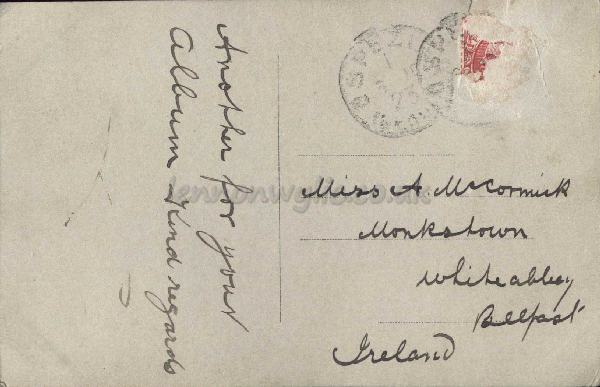 Another for your
Album Kind regards
Miss A McCormick
Monkstown
Whiteabbey
Belfast
Ireland
lennonwylie.co.uk